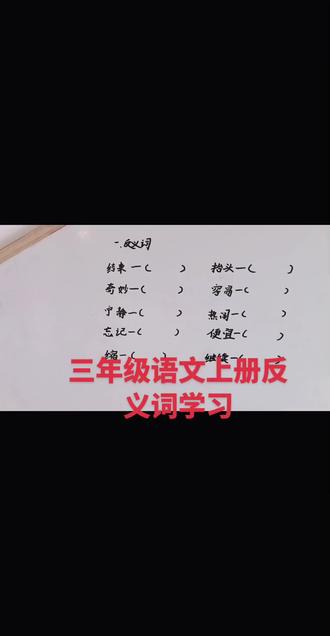 一.反义词
结束一(    )    抬头一(    )
奇妙一(    )    容易一(    )
宁静一(    )    热闹一(    )
忘记一(    )    便宜一(    )
缩一(    )    继续一(    )
三年级语文上册反
义词学习